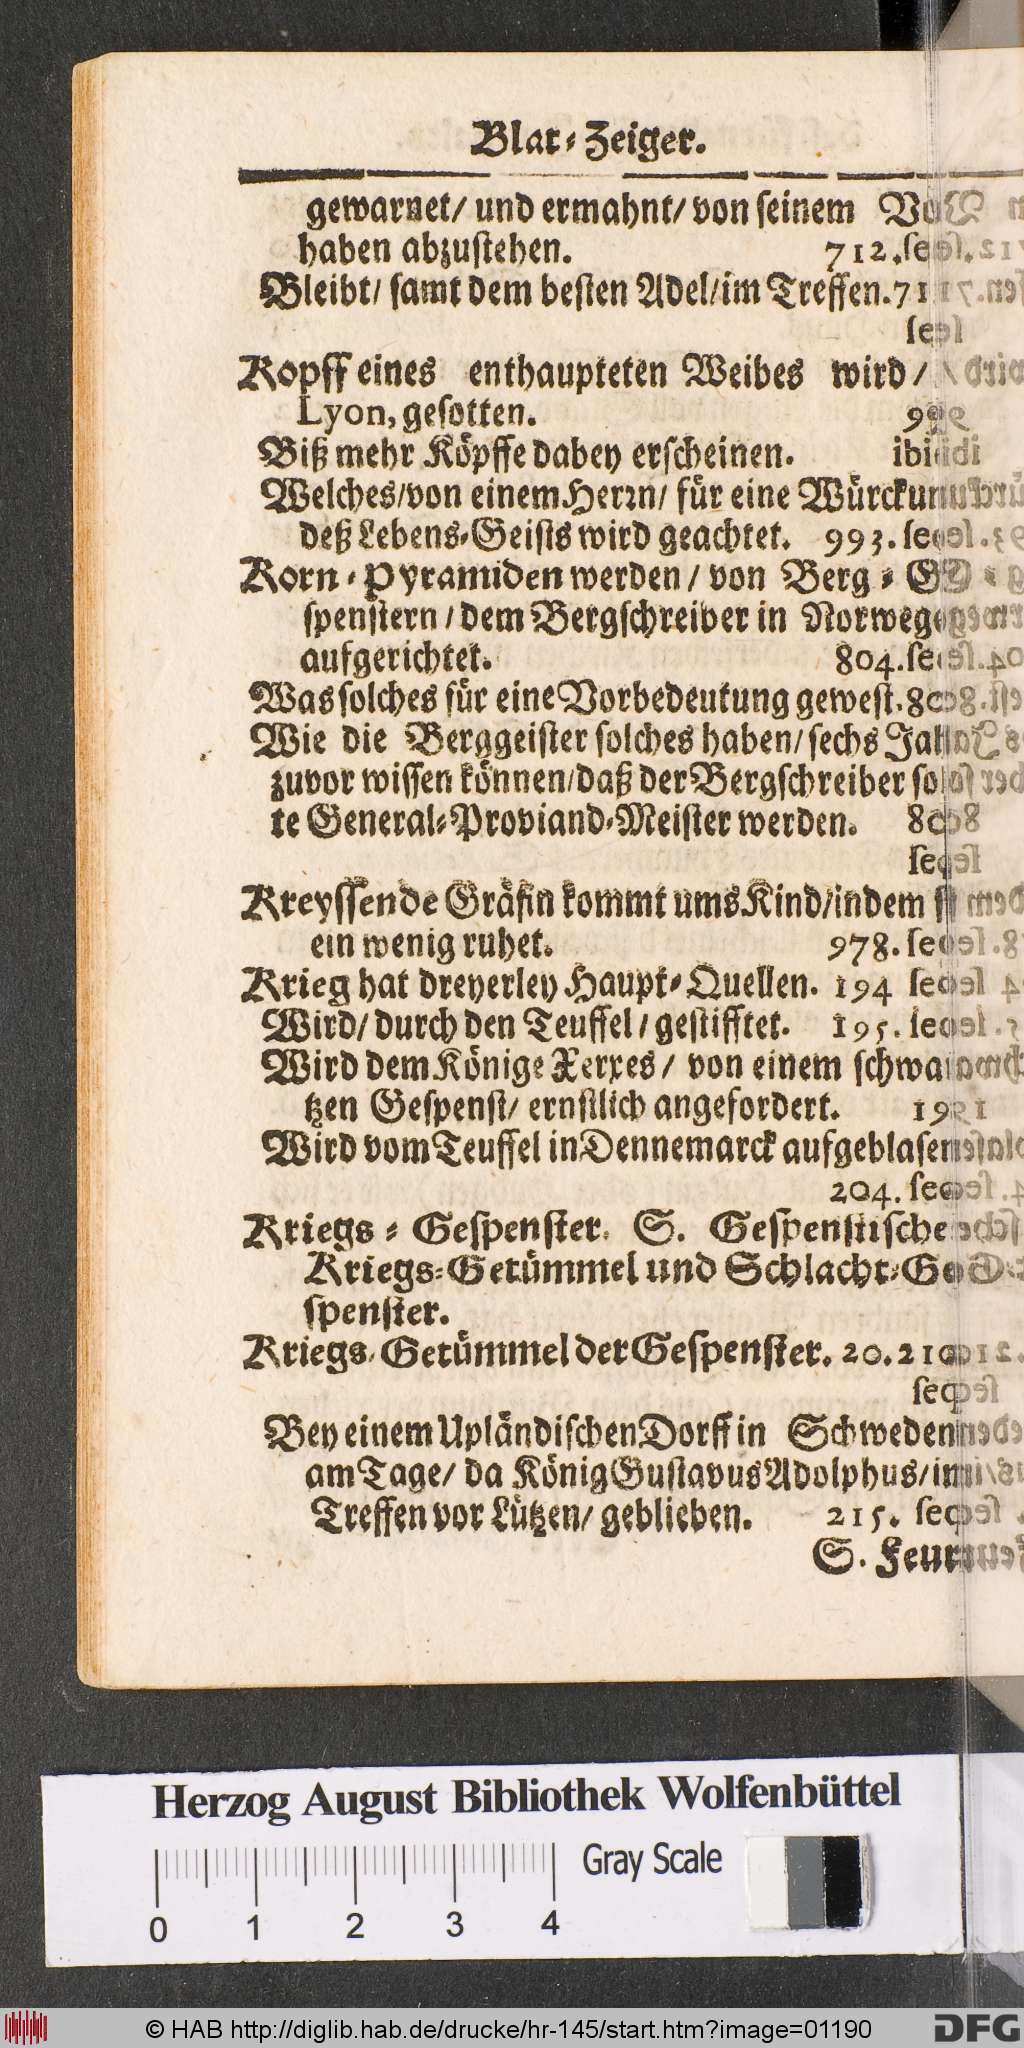 Blat-Zeiger.
gewarnet/ und ermahnt/ von seinem
haben abzustehen. 712. seq
Bleibt/ samt dem besten Adel/ im Treffen. 711
seq
Kopff eines enthaupteten Weibes wird/
Lyon, gesotten. 992
Biß mehr Köpffe dabey erscheinen. ibid
Welches/ von einem Herrn/ für eine Würckung
deß Lebens-Geists wird geachtet. 993. seq
Korn-Pyramiden werden/ von Berg-Ge
spenstern/ dem Bergschreiber in Norwegen
aufgerichtet. 804. seq
Was solches für eine Vorbedeutung gewest. 808
Wie die Berggeister solches haben/ sechs Jahr
zuvor wissen können/ daß der Bergschreiber sol
te General-Proviand-Meister werden. 808
seq
Kreyssende Gräfin kommt ums Kind/ indem
ein wenig ruhet. 978. seq
Krieg hat dreyerley Haupt-Quellen. 194 seq
Wird/ durch den Teuffel/ gestifftet. 195. seq
Wird dem Könige Xerxes/ von einem schwar
tzen Gespenst/ ernstlich angefordert. 199
Wird vom Teuffel in Dennemarck aufgeblasen
204. seq
Kriegs-Gespenster. S. Gespenstische
Kriegs-Getümmel und Schlacht-Ge
spenster.
Kriegs-Getümmel der Gespenster. 20. 210
seq
Bey einem Upländischen Dorff in Schweden
am Tage/ da König Gustavus Adolphus/ im
Treffen vor Lützen/ geblieben. 215. seq
S. Feur
Herzog August Bibliothek Wolfenbüttel
Gray Scale
0 1 2 3 4
© HAB http://diglib.hab.de/drucke/hr-145/start.htm?image=01190
DFG